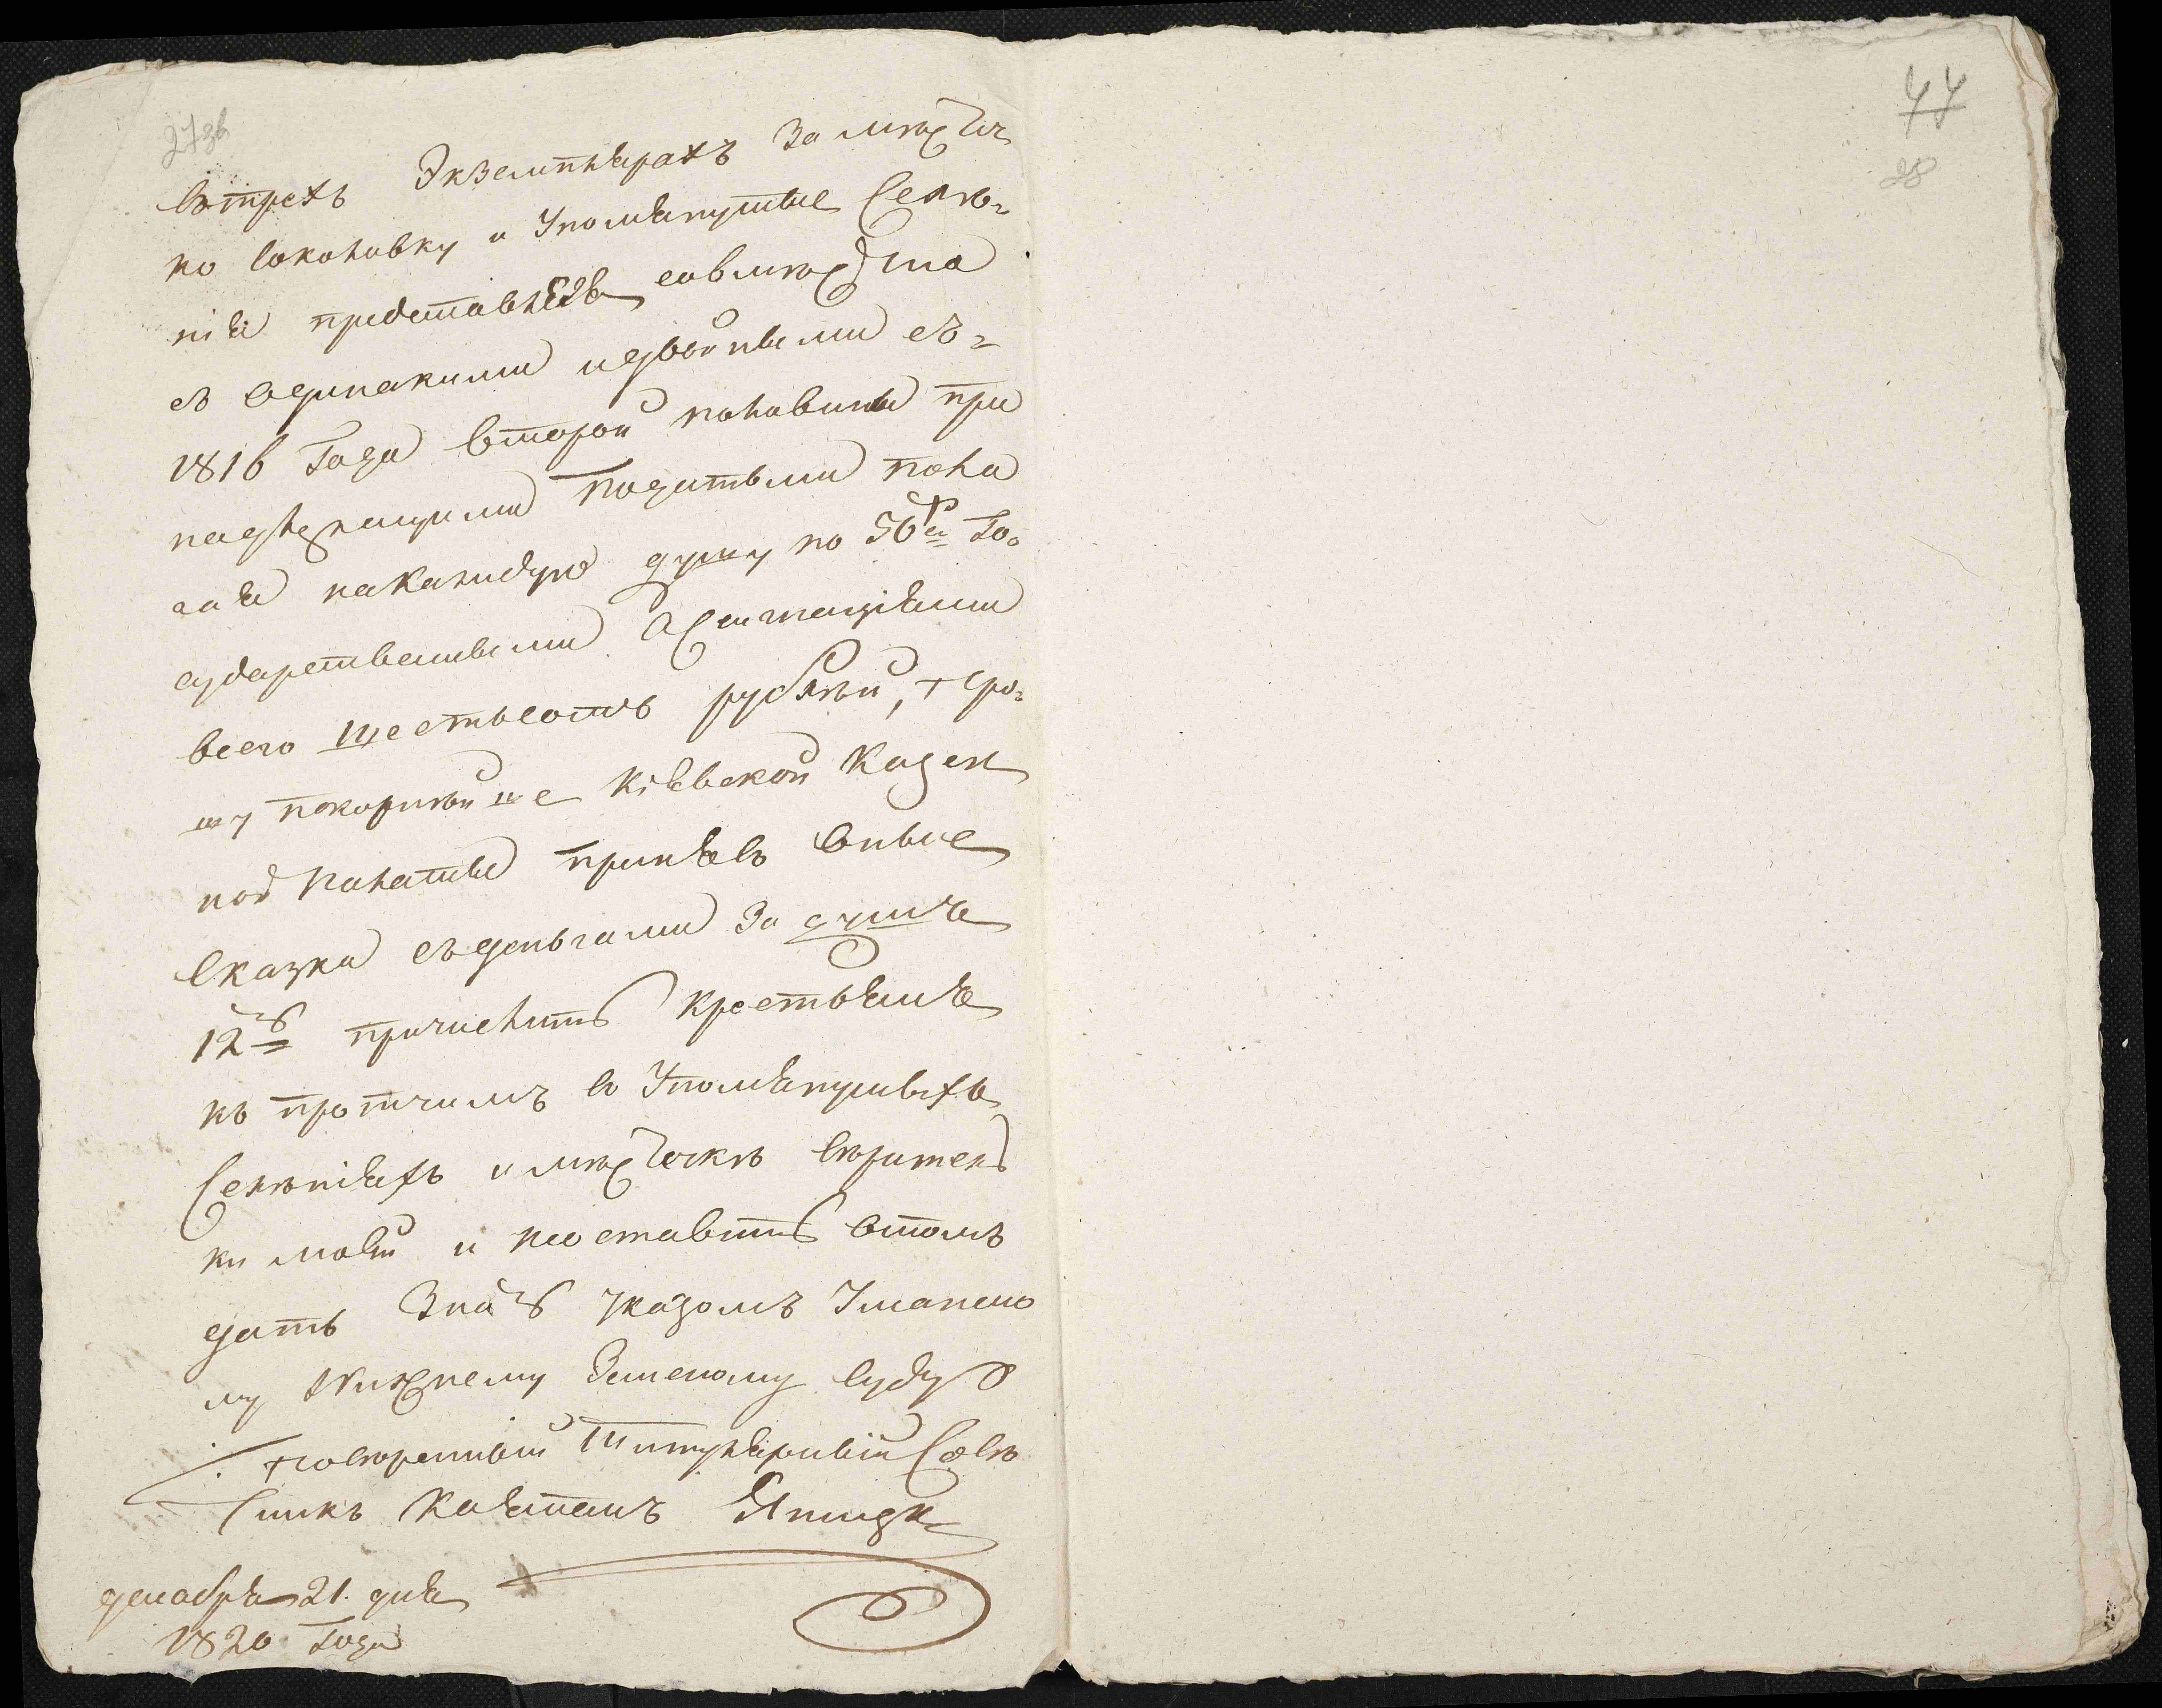 27 зв
44
28
втрехъ Экземплярахъ За мѣстеч
ко Соколивку и Упомянутые Селѣ-
нія представляя совмѣстно
съ одинакими и двойными съ-
1816 Года второй половины при
надлежащими Податьми пола
гая накаждую душу по 50 Го-
сударственными Асигнаціями
всего шестьсотъ рублѣй, + про-
шу покорнѣйше Кіевской Казен
ной Палаты принявъ оные
Сказки съ деньгами За душъ
12ть причислить крестьянъ
къ протчимъ въ Упомянутыхъ
Селѣніяхъ и мѣстечкѣ вѣритель
ки моей и поставить втомъ
дать Знать указомъ Уманско
му Нижнему Земскому Суду
повѣренный Титулярный Совѣ
тникъ Каэтанъ
декабря 21. дня
1820 Года